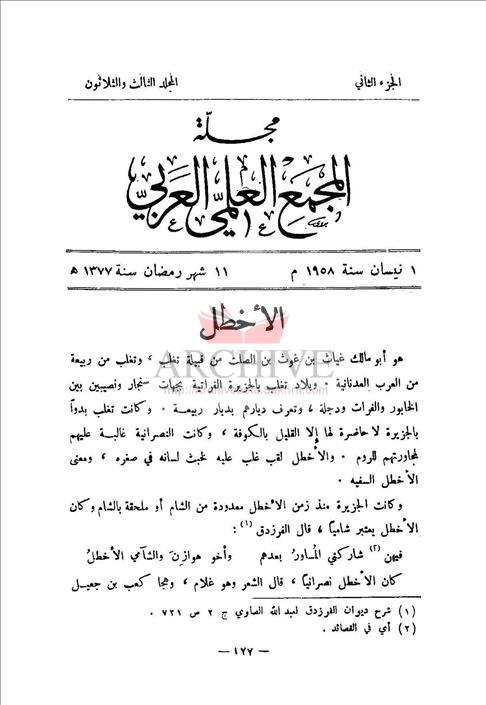 الجزء الثاني
المجلد الثالث والثلاثون
مجلة
المجمع العلمي العربي
١ نيسان سنة ١٩٥٨ م
١١ شهر رمضان سنة ١٣٧٧ هـ
الأخطل
هو أبو مالك غياث بن غوث بن الصلت من قبيلة تغلب ، وتغلب من ربيعة
من العرب العدنانية . وبلاد تغلب بالجزيرة الفراتية بجهات سنجار ونصيبين بين
الخابور والفرات ودجلة ، وتعرف ديارهم بديار ربيعة . وكانت تغلب بدواً
بالجزيرة لا حاضرة لها إلا القليل بالكوفة ، وكانت النصرانية غالبة عليهم
لمجاورتهم للروم . والأخطل لقب غلب عليه لخبث لسانه في صغره ، ومعنى
الأخطل السفيه .
وكانت الجزيرة منذ زمن الأخطل معدودة من الشام أو ملحقة بالشام وكان
الأخطل يعتبر شامياً ، قال الفرزدق (١) :
فيهن (٢) شاركني المساور بعدهم وأخو هوازن والشآمي الأخطلُ
كان الأخطل نصرانياً ، قال الشعر وهو غلام ، وهجا كعب بن جعيل
(١) شرح ديوان الفرزدق لعبد الله الصاوي ج ٢ س ٧٢١ .
(٢) أي في القصائد .
— ١٧٧ —
ARCHIVE